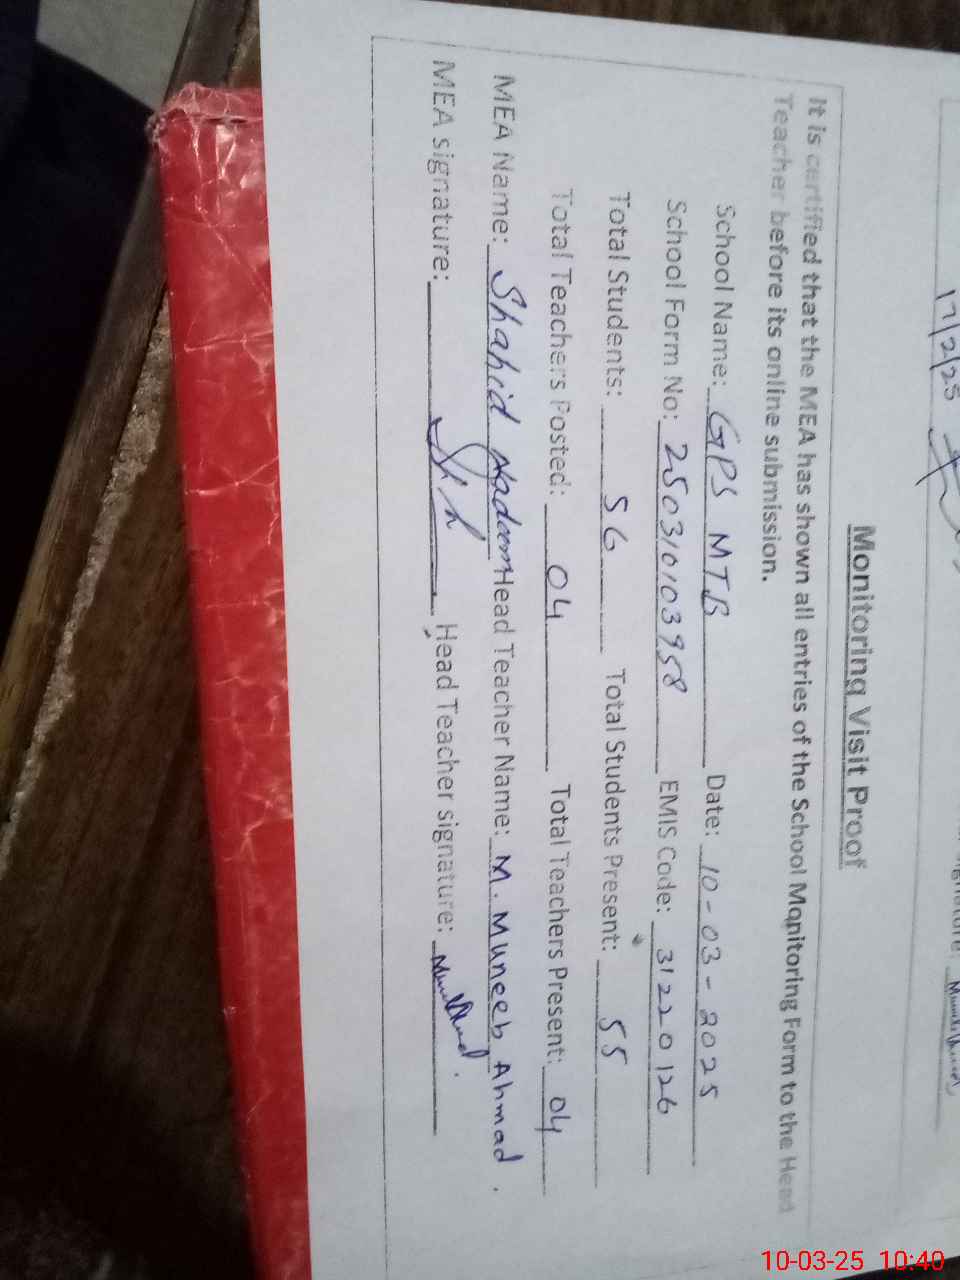 17/2/25
Monitoring Visit Proof
It is certified that the MEA has shown all entries of the School Monitoring Form to the Head
Teacher before its online submission.
School Name: GPS MTB Date: 10-03-2025
School Form No: 250310103958 EMIS Code: 31220126
Total Students: 56 Total Students Present: 55
Total Teachers Posted: 04 Total Teachers Present: 04
MEA Name: Shahid Nadeem Head Teacher Name: M. Muneeb Ahmad.
MEA signature: Head Teacher signature:
10-03-25 10:40